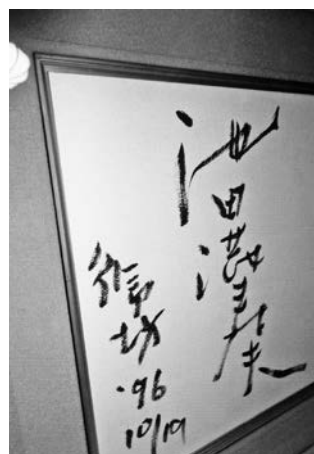 池田満寿夫
'96
10/19